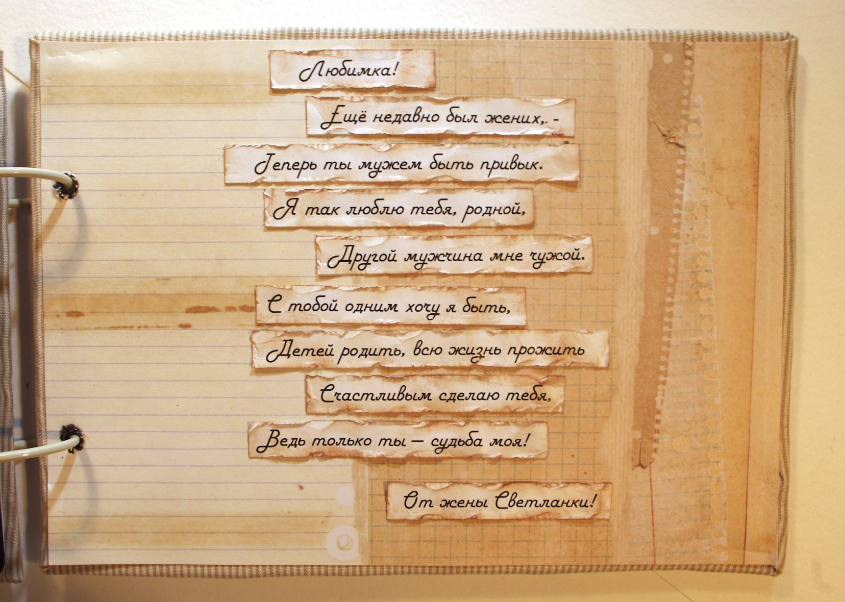 Любимка!
Ещё недавно был жених, -
Теперь ты мужем быть привык.
Я так люблю тебя, родной,
Другой мужчина мне чужой.
С тобой одним хочу я быть,
Детей родить, всю жизнь прожить
Счастливым сделаю тебя,
Ведь только ты — судьба моя!
От жены Светланки!